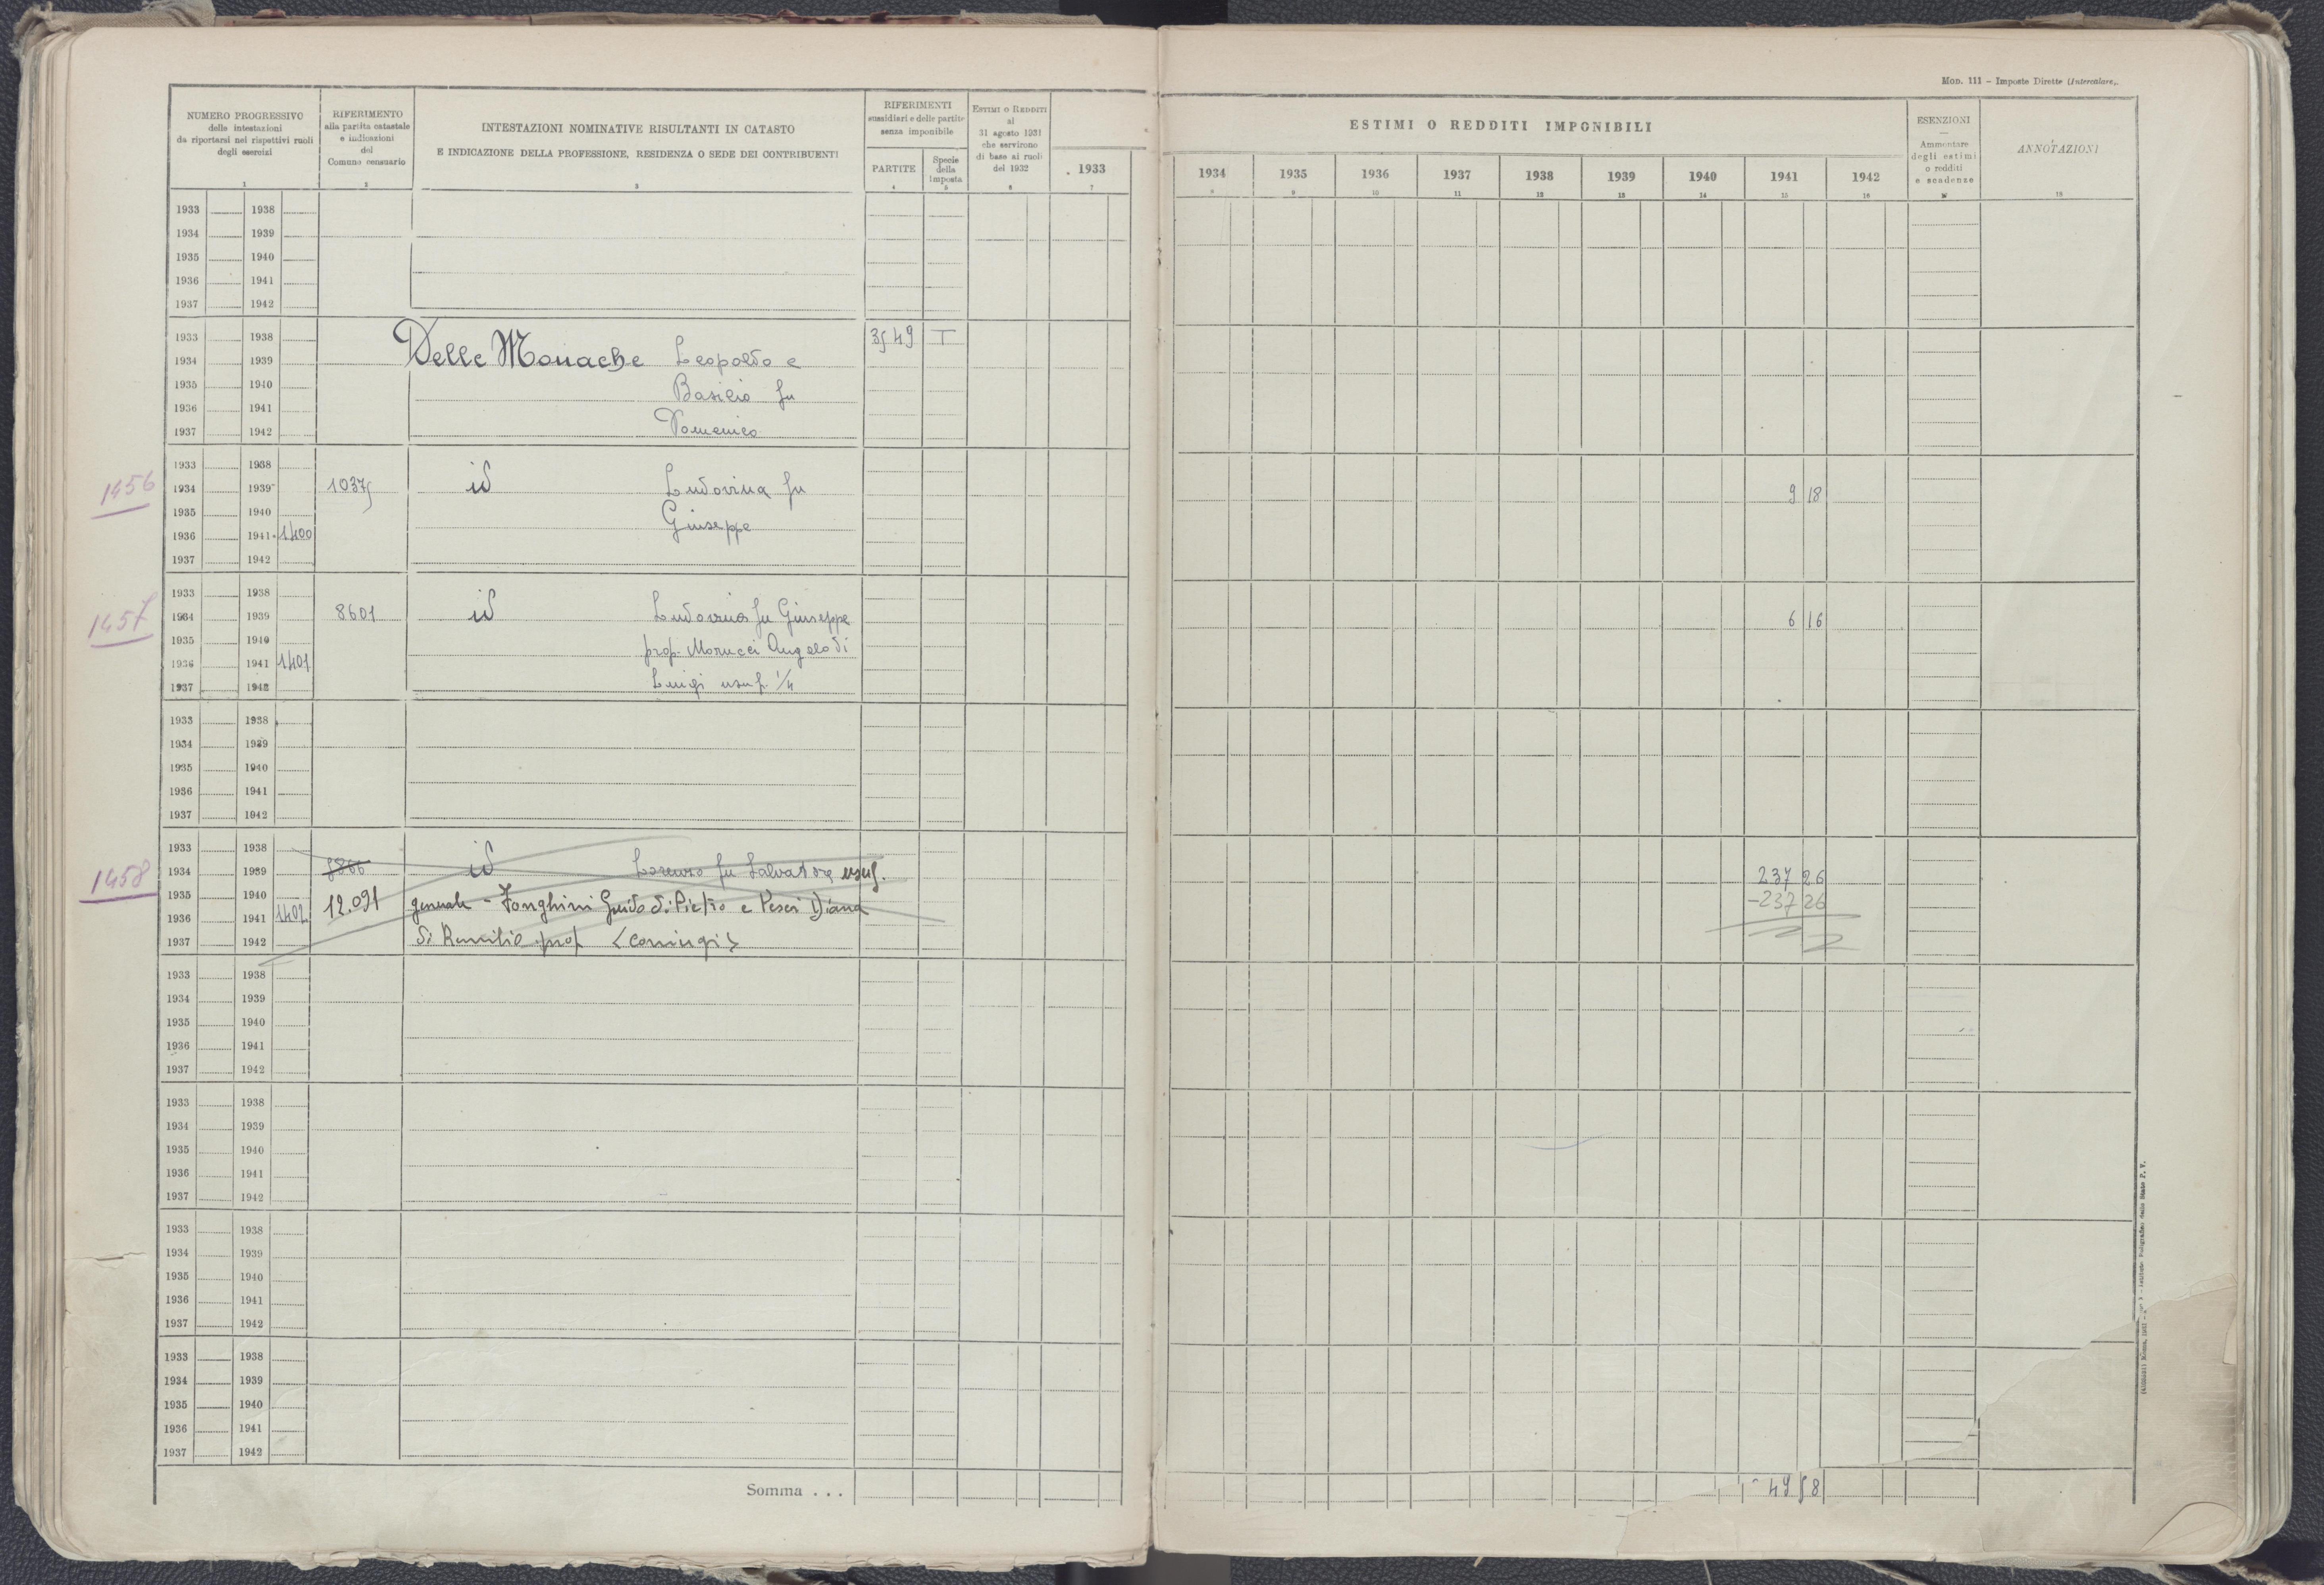 Mod. 111 – Imposte Dirette (Intercalare).
NUMERO PROGRESSIVO
delle intestazioni
da riportarsi nei rispettivi ruoli
degli esercizi
1
RIFERIMENTO
alla partita catastale
e indicazioni
del
Comune censuario
2
INTESTAZIONI NOMINATIVE RISULTANTI IN CATASTO
E INDICAZIONE DELLA PROFESSIONE, RESIDENZA O SEDE DEI CONTRIBUENTI
3
RIFERIMENTI
sussidiari e delle partite
senza imponibile
PARTITE
4
Specie
della
imposta
5
ESTIMI O REDDITI
al
31 agosto 1931
che servirono
di base ai ruoli
del 1932
6
1933
7
ESTIMI O REDDITI IMPONIBILI
1934 1935 1936 1937 1938 1939 1940 1941 1942
8 9 10 11 12 13 14 15 16
ESENZIONI
—
Ammontare
degli estimi
o redditi
e scadenze
17
ANNOTAZIONI
18
1933 1938
1934 1939
1935 1940
1936 1941
1937 1942
1933 1938 3549 T
1934 1939 Delle Monache Leopoldo e
1935 1940 Basilio fu
1936 1941
1937 1942 Domenico
1933 1938
1456 1934 1939 10375 id Ludovina fu 9 18
1935 1940 Giuseppe
1936 1941 1400
1937 1942
1933 1938
1457 1934 1939 8601 id Ludovina fu Giuseppe 6 16
1935 1940 prop. Morucci Angelo di
1936 1941 1401
1937 1942 Luigi usuf. 1/4
1933 1938
1934 1939
1935 1940
1936 1941
1937 1942
1933 1938
1458 1934 1939 id Lorenzo fu Salvatore usuf. 237 26
1935 1940 12.091 generale - Fonghini Guido di Pietro e Pesci Diana -237 26
1936 1941 1402
1937 1942 di Romilio prop (coniugi)
1933 1938
1934 1939
1935 1940
1936 1941
1937 1942
1933 1938
1934 1939
1935 1940
1936 1941
1937 1942
1933 1938
1934 1939
1935 1940
1936 1941
1937 1942
1933 1938
1934 1939
1935 1940
1936 1941
1937 1942
Somma . . . 49 58
Istituto Poligrafico dello Stato P. V.